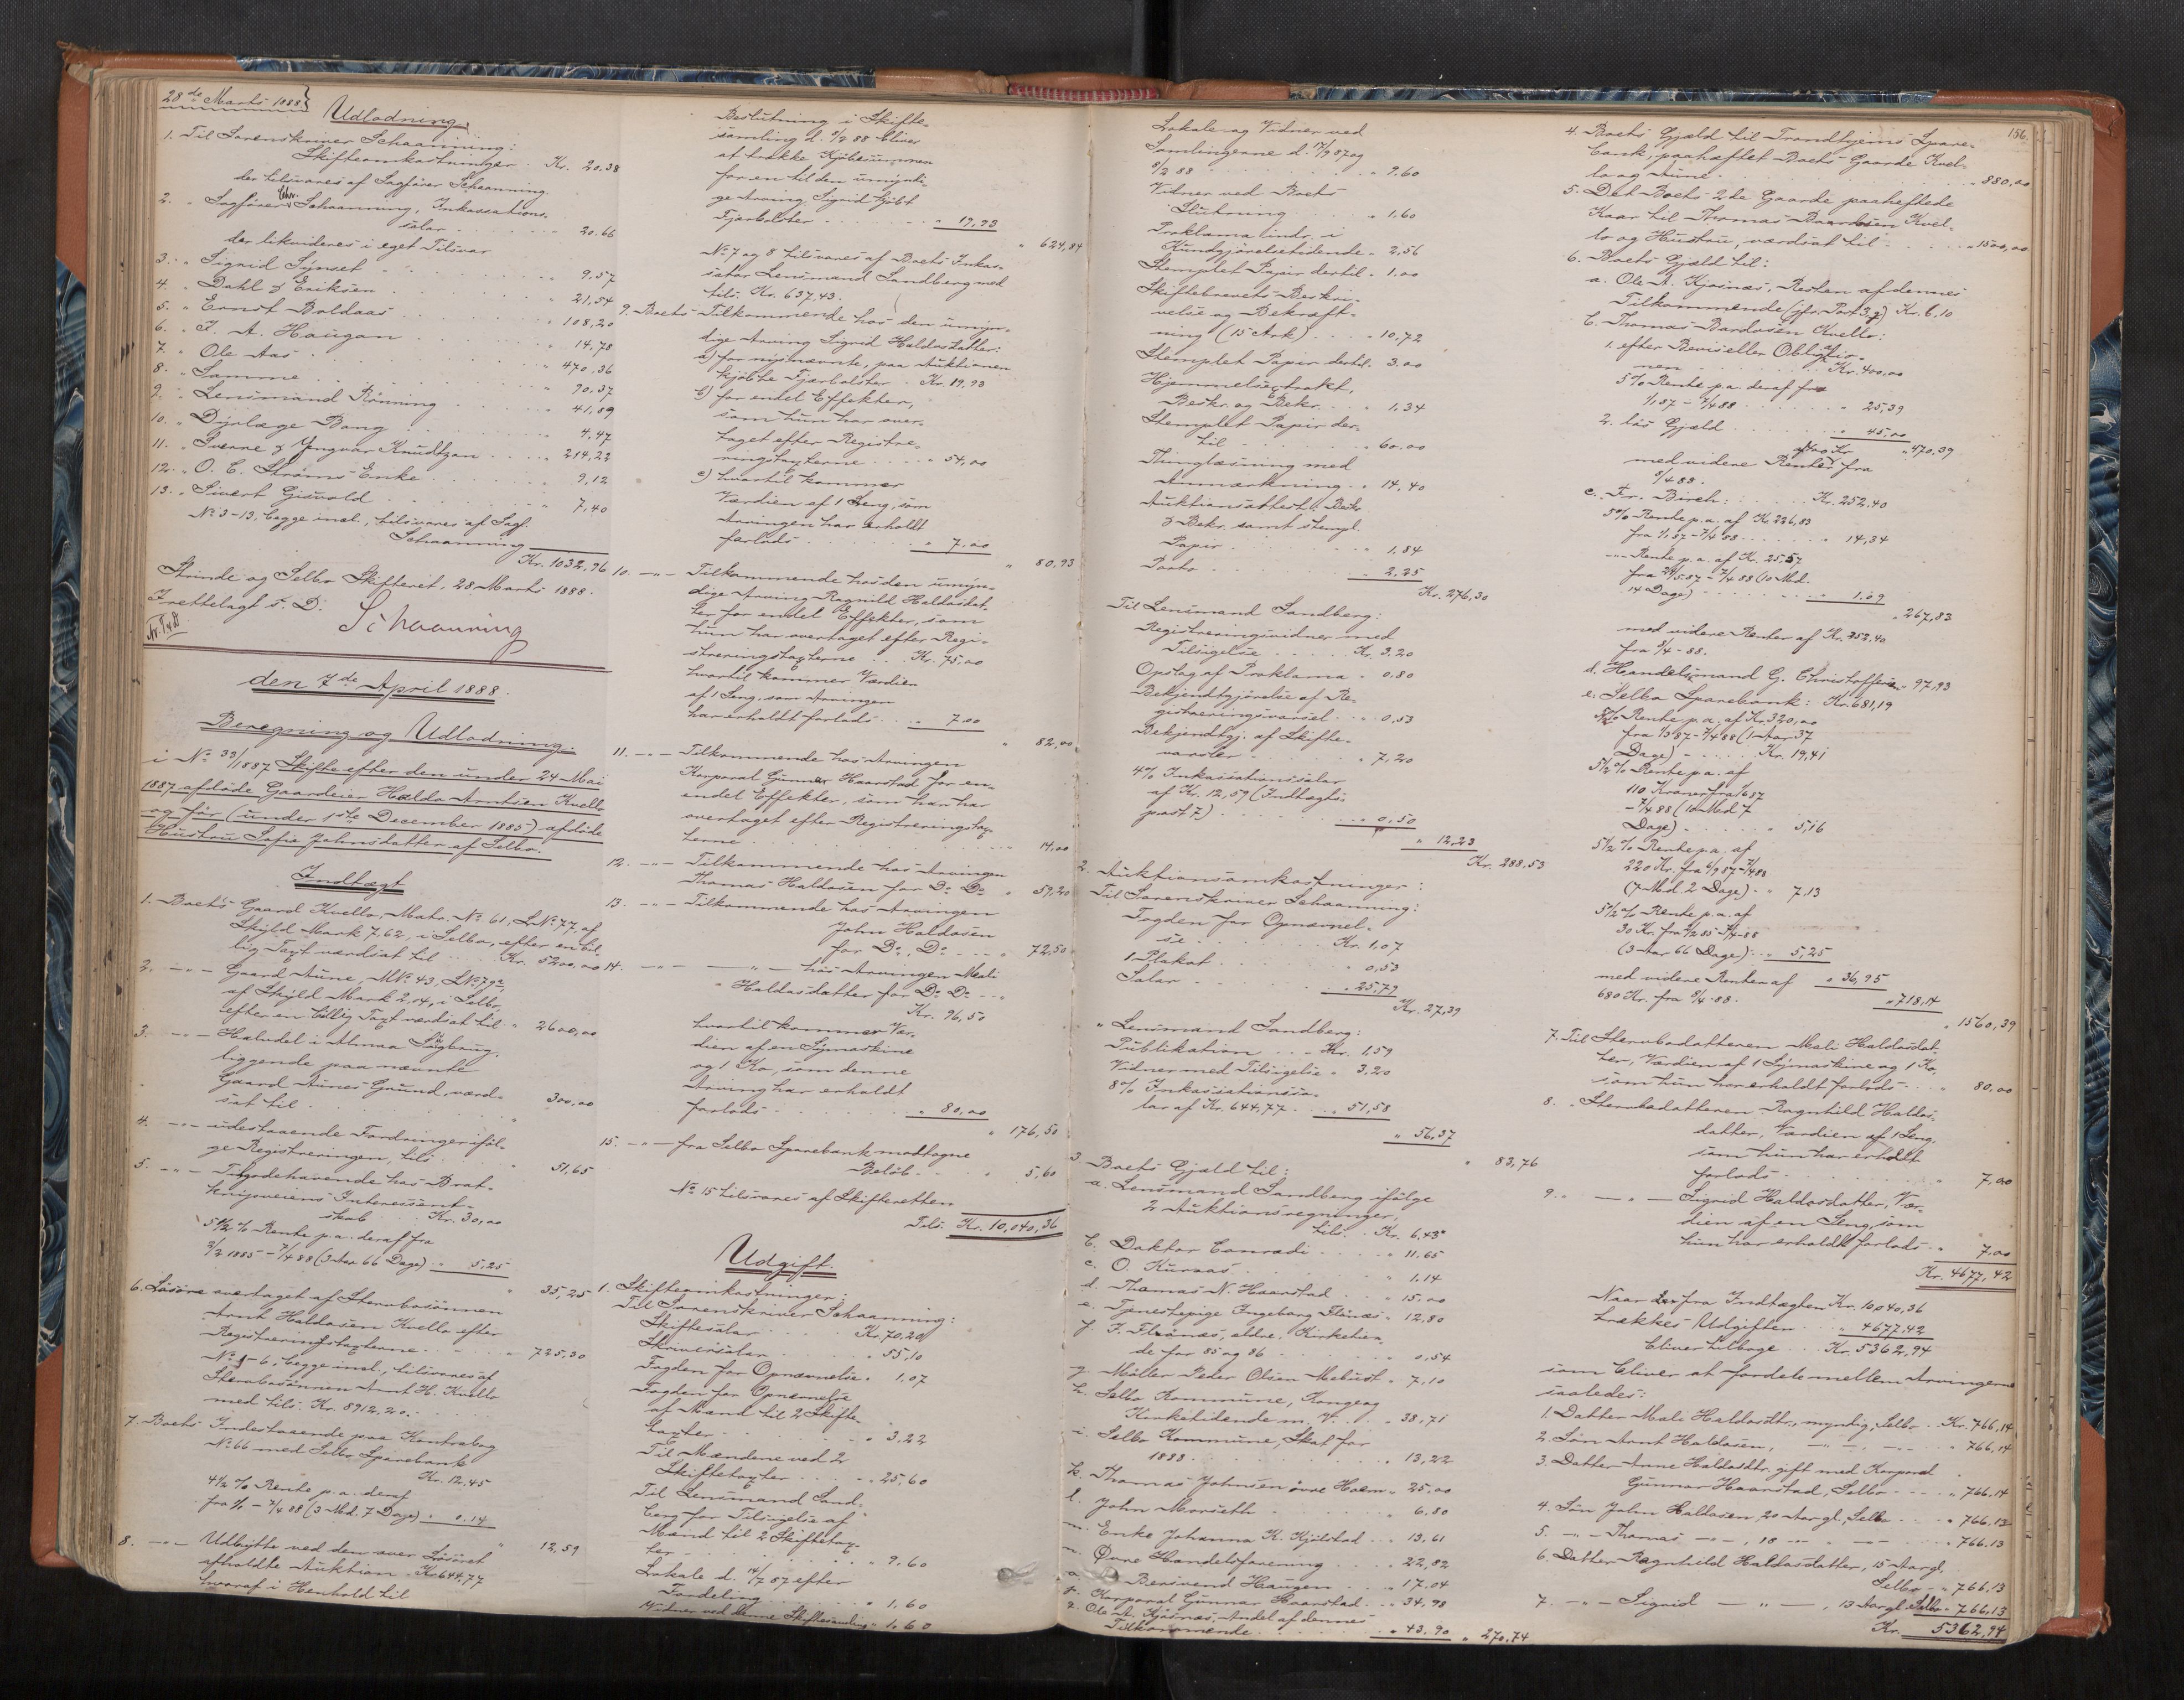 28de Marts 1888
Udlodning.
1. Til Sorenskriver Schaanning:
Skifteomkostninger . Kr. 20.38
der tilsvares af Sagfører Schaanning.
2. " Sagfører Schaanning, Inkassations-
salær . . . " 20.66
der likvideres i eget Tilsvar
3. " Sigrid Synset . . " 9,57
4. " Dahl & Eriksen . . " 21,54
5. " Ernst Boldaas . . " 108,20
6. " J. A. Haugan . . " 14,78
7. " Ole Aas . . " 470,36
8. " Samme . . " 90,37
9. " Lensmand Rønning . . " 41,89
10. " Dyrlæge Bong . . " 4,47
11. " Sverre & Yngvar Knudtzon . . " 214,22
12. " O. C. Strøms Enke . . " 9,12
13. " Sivert Gisvold . . " 7,40
No 3-13, begge incl., tilsvares af Sagf.
Schaanning
Kr. 1032,96
Strinde og Selbo Skifteret, 28 Marts 1888.
Frettelagt s. D.
Schaanning
den 7de April 1888.
Beregning og Udlodning
i No 33/1887 Skifte efter den under 24 Mai
1887 afdøde Gaardeier Haldo Arntsen Kvello
og før (under 1ste December 1885) afdøde
Hustru Sofie Johnsdatter af Selbo.
Indtægt
1. Boets Gaard Kvello, Matr. No 61, LNo 77, af
Skyld Mark 7,62, i Selbo, efter en bil-
lig Taxt værdsat til . . Kr. 5200,00
2. -"- Gaard Aune, MNo 43, LNo 79a,
af Skyld Mark 2,14, i Selbo,
efter en billig Taxt værdsat til " 2600,00
3. -"- Halvdel i Almaa Sagbrug,
liggende paa nævnte
Gaard Aunes Grund, værd-
sat til . . . " 300,00
4. -"- udestaaende Fordringer iføl-
ge Registreringen, tils. . . " 51,65
5. -"- Tilgodehavende hos Brat-
Interessent-
skab . . Kr. 30,00
5 1/2 % Rente p. a. deraf fra
2/2 1885 - 7/4 88 (3 Aar 66 Dage) " 5,25
" 35,25
6. Løsøre overtaget af Stervbosønnen
Arnt Haldosen Kvello efter
Registreringstaxterne . . " 725,30
No 1-6, begge incl., tilsvares af
Stervbosønnen Arnt H. Kvello
med tils. Kr. 8912,20.
7. Boets Indestaaende paa Kontrabog
No 66 med Selbo Sparebank
Kr. 12,45
4 1/2 % Rente p. a. deraf
fra 1/1 - 7/4 88 (3 Md. 7 Dage) " 0.14
" 12,59
8. -"- Udbytte ved den over Løsøret
afholdte Auktion . Kr. 644,77
hvoraf i Henhold til
Beslutning i Skifte-
samling d. 8/2 88 bliver
at trække Kjøbesummen
for en til den umyndi-
ge Arving Sigrid kjøbt
Fjærbolster . . . " 19,93
" 624,84
No 7 og 8 tilsvares af Boets Inkas-
sator Lensmand Sandberg med
tils. Kr. 637,43.
9. Boets Tilkommende hos den umyn-
dige Arving Sigrid Haldosdatter:
a) for nysnævnte, paa Auktionen
kjøbte Fjærbolster . Kr. 19,93
b) for endel Effekter,
som hun har over-
taget efter Registre-
ringstaxterne . . " 54,00
c) hvortil kommer
Værdien af 1 Seng, som
Arvingen har erholdt
forlods . . . " 7,00
" 80,93
10. -"- Tilkommende hos den umyn-
dige Arving Ragnild Haldosdat-
ter for endel Effekter, som
hun har overtaget efter Regi-
streringstaxterne . . Kr. 75,00
hvortil kommer Værdien
af 1 Seng, som Arvingen
har erholdt forlods . . " 7,00
" 82,00
11. -"- Tilkommende hos Arvingen
Korporal Gunnar Haarstad for en-
endel Effekter, som han har
overtaget efter Registreringstax-
terne . . . " 14,00
12. -"- Tilkommende hos Arvingen
Thomas Haldosen for Do Do " 59,20
13. -"- Tilkommende hos Arvingen
John Haldosen
for Do, Do . . " 72,50
14. -"- -"- hos Arvingen Mali
Haldosdatter for Do Do . .
Kr. 96,50
hvortil kommer Vær-
dien af en Symaskine
og 1 Ko, som denne
Arving har erholdt
forlods . . . " 80,00
" 176,50
15. -"- fra Selbo Sparebank modtagne
Beløb . . . " 5,60
No 15 tilsvares af Skifteretten
Tils. Kr. 10,040,36
Udgift.
1. Skifteomkostninger:
Til Sorenskriver Schaanning:
Skiftesalær . . . Kr. 70,20
Skriversalær . . . " 55,10
Fogden for Opnævnelse . " 1,07
Fogden for Opnævnelse
af Mænd til 2 Skifte-
taxter . . . " 3,22
Til Mændene ved 2
Skiftetaxter . . . " 25,60
Til Lensmand Sand-
berg for Tilsigelse af
Mænd til 2 Skiftetax-
ter . . . " 9,60
Lokale d. 14/7 87 efter
Fordeling . . . " 1,60
Vidner ved denne Skiftesamling " 1,60
Lokale og Vidner ved
Samlingerne d. 17/9 87 og
8/2 88 . . . " 9.60
Vidner ved Boets
Slutning . . . " 1,60
Proklama indr. i
Kundgjørelsestidende . " 2,56
Stemplet Papir dertil . " 1.00
Skiftebrevets Beskri-
velse og Bekræft-
ning (15 Ark) . . . " 10,72
Stemplet Papir dertil . " 3.00
Hjemmelsextrakt,
Beskr. og Bekr. . . " 1,34
Stemplet Papir der-
til . . . " 60.00
Thinglæsning med
Anmærkning . . " 14,40
Auktionsattest, Beskr.
& Bekr. samt stempl.
Papir . . . " 1,84
Porto . . . " 2,25
Kr. 276,30
Til Lensmand Sandberg:
Registreringsvidner med
Tilsigelse . . . Kr. 3.20
Opslag af Proklama . " 0,80
Bekjendtgjørelse af Re-
gistreringsvarsel . . " 0,53
Bekjendtgj. af Skifte-
varsler . . . " 7,20
4% Inkassationssalær
af Kr. 12,59 (Indtægts-
post 7) . . . " 0,50
" 12,23
Kr. 288.53
2. Auktionsomkostninger:
Til Sorenskriver Schaanning:
Fogden for Opnævnel-
se . . . Kr. 1,07
1 Plakat . . . " 0,53
Salær . . . " 25,79
Kr. 27,39
" Lensmand Sandberg:
Publikation . . . Kr. 1,59
Vidner med Tilsigelse . " 3,20
8% Inkassationssa-
lær af Kr. 644,77 . . " 51,58
" 56,37
" 83,76
3. Boets Gjæld til:
a. Lensmand Sandberg ifølge
2 Auktionsregninger,
tils. . Kr. 6,43
b. Doktor Conradi . . . " 11,65
c. O. Kuraas . . . " 1.14
d. Thomas N. Haarstad . . " 15,00
e. Tjenestepige Ingeborg Flønæs . " 12,80
f. J. Flønæs, ældre, Kirketien-
de for 85 og 86 . . . " 0,54
g. Møller Peder Olsen Mebust . " 7,10
h. Selbo Kommune, Konge og
Kirketiende m. V. . . " 38,71
i. Selbo Kommune, Skat for
1888 . . . " 13,22
k. Thomas Johnsen øvre Hoem . " 25,00
l. John Morseth . . . " 6.80
m. Enke Johanna K. Kjelstad . . " 13,61
n. Øvre Handelsforening . . " 22,82
o. Berøvend Haugen . . " 17.04
p. Korporal Gunnar Haarstad . . " 34,98
q. Ole A. Kjøsnæs, Andel af dennes
Tilkommende . . . " 43,90 " 270,74
156.
4. Boets Gjæld til Trondhjems Spare-
bank, paaheftet Boets Gaarde Kvel-
lo og Aune . . . " 880,00
5. Det Boets 2de Gaarde paaheftede
Kaar til Thomas Baardsen Kvel-
lo og Hustru, værdsat til . . . " 1500,00
6. Boets Gjæld til:
a. Ole A. Kjøsnæs, Resten af dennes
Tilkommende (jfr. Post 3 q) Kr. 6,10
b. Thomas Bardosen Kvello:
1. efter Beviseller Obligatio-
nen . . . Kr. 400,00
5% Rente p. a. deraf fra
1/1 87 - 7/4 88 . . . " 25,39
2. løs Gjæld . . . " 45,00
" 470.39
med videre Renter af 400 Kr fra
8/4 88.
c. Fr. Birch: . . . Kr. 252.40
5% Rente p. a. af Kr. 226,83
fra 1/1 87 - 7/4 88 . . . " 14,34
-"- Rente p. a. af Kr. 25,57
fra 24/5 87 - 7/4 88 (10 Md.
14 Dage) . . . " 1.09
" 267,83
med videre Renter af Kr. 252.40
fra 8/4 - 88.
d. Handelsmand G. Christoffersen " 97,93
e. Selbo Sparebank: Kr. 681,19
5 1/2 % Rente p. a. af Kr. 320,00
fra 1/3 87 - 7/4 88 (1 Aar 37
Dage) . . . Kr. 19,41
5 1/2 % Rente p. a. af
110 Kroner fra 1/6 87
- 7/4 88 (10 Md. 7
Dage) . . . " 5,16
5 1/2 % Rente p. a. af
220 Kr. fra 6/9 87 - 7/4 88
(7 Md. 2 Dage) . . " 7.13
5 1/2 % Rente p. a. af
30 Kr. fra 2/2 85 - 7/4 - 88
(3 Aar 66 Dage) . . " 5,25
" 36,95
med videre Renter af
680 Kr. fra 8/4 - 88. " 718,14
" 1560,39
7. Til Stervbodatteren Mali Haldosdat-
ter, Værdien af 1 Symaskine og 1 Ko,
som hun har erholdt forlods . . " 80,00
8. " Stervbodatteren Ragnhild Haldos-
datter, Værdien af 1 Seng,
som hun har erholdt
forlods . . . " 7,00
9. " -"- Sigrid Haldosdatter, Vær-
dien af en Seng, som
hun har erholdt forlods . . " 7,00
Kr. 4677,42
Naar der fra Indtægten Kr. 10,040,36
trækkes Udgiften . . " 4677.42
bliver tilbage . . Kr. 5362,94
som bliver at fordele mellem Arvingerne
saaledes:
1. Datter Mali Haldosdtr., myndig, Selbo . . Kr. 766,14
2. Søn Arnt Haldosen, -"- , -"- . . " 766,14
3. Datter Anne Haldosdtr. gift med Korporal
Gunnar Haarstad, Selbo . . . " 766.14
4. Søn John Haldosen, 20 Aar gl., Selbo . . " 766,13
5. -"- Thomas -"- , 18 -"- -"- . . " 766.13
6. Datter Ragnhild Haldosdatter, 15 Aar gl.
Selbo . . " 766.13
7. -"- Sigrid -"- , 13 Aar gl. Selbo . " 766.13
Kr. 5362,94